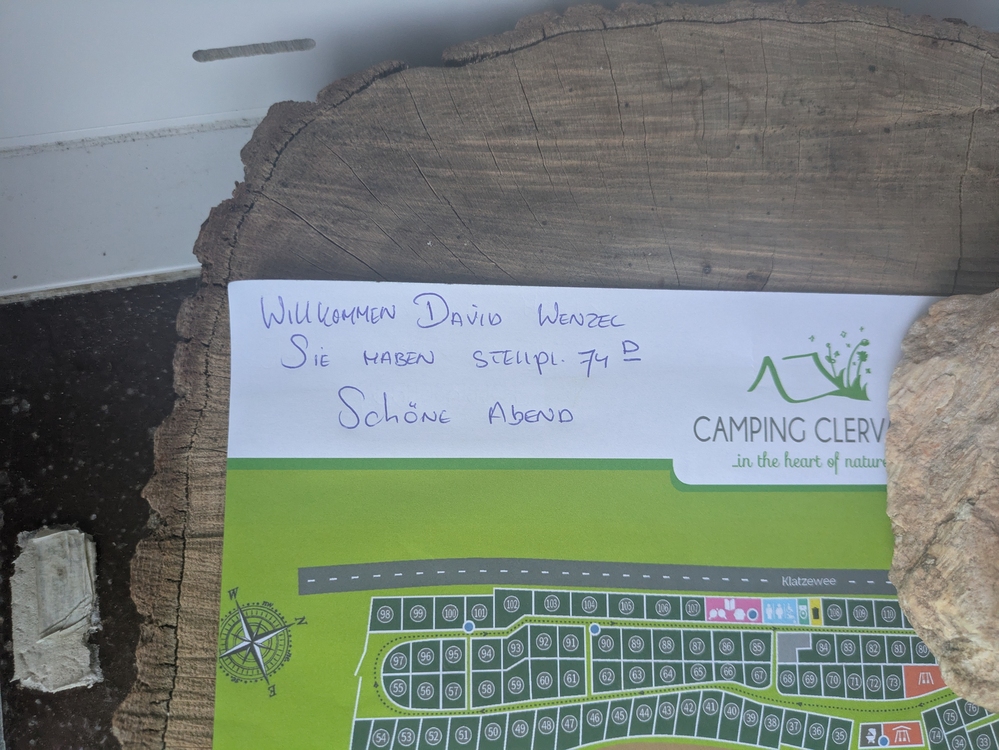 WILLKOMMEN DAVID WENZEL
SIE HABEN STELLPL. 74 D
SCHÖNE ABEND
CAMPING CLERV
...in the heart of nature
Klatzewee
W
N
E
98 99 100 101 102 103 104 105 106 107 108 109 110
97 96 95 94 93 92 91 90 89 88 87 86 85 84 83 82 81 80
55 56 57 58 59 60 61 62 63 64 65 66 67 68 69 70 71 72 73
54 53 52 51 50 49 48 47 46 45 44 43 42 41 40 39 38 37 36 35
74 75 76
34 33